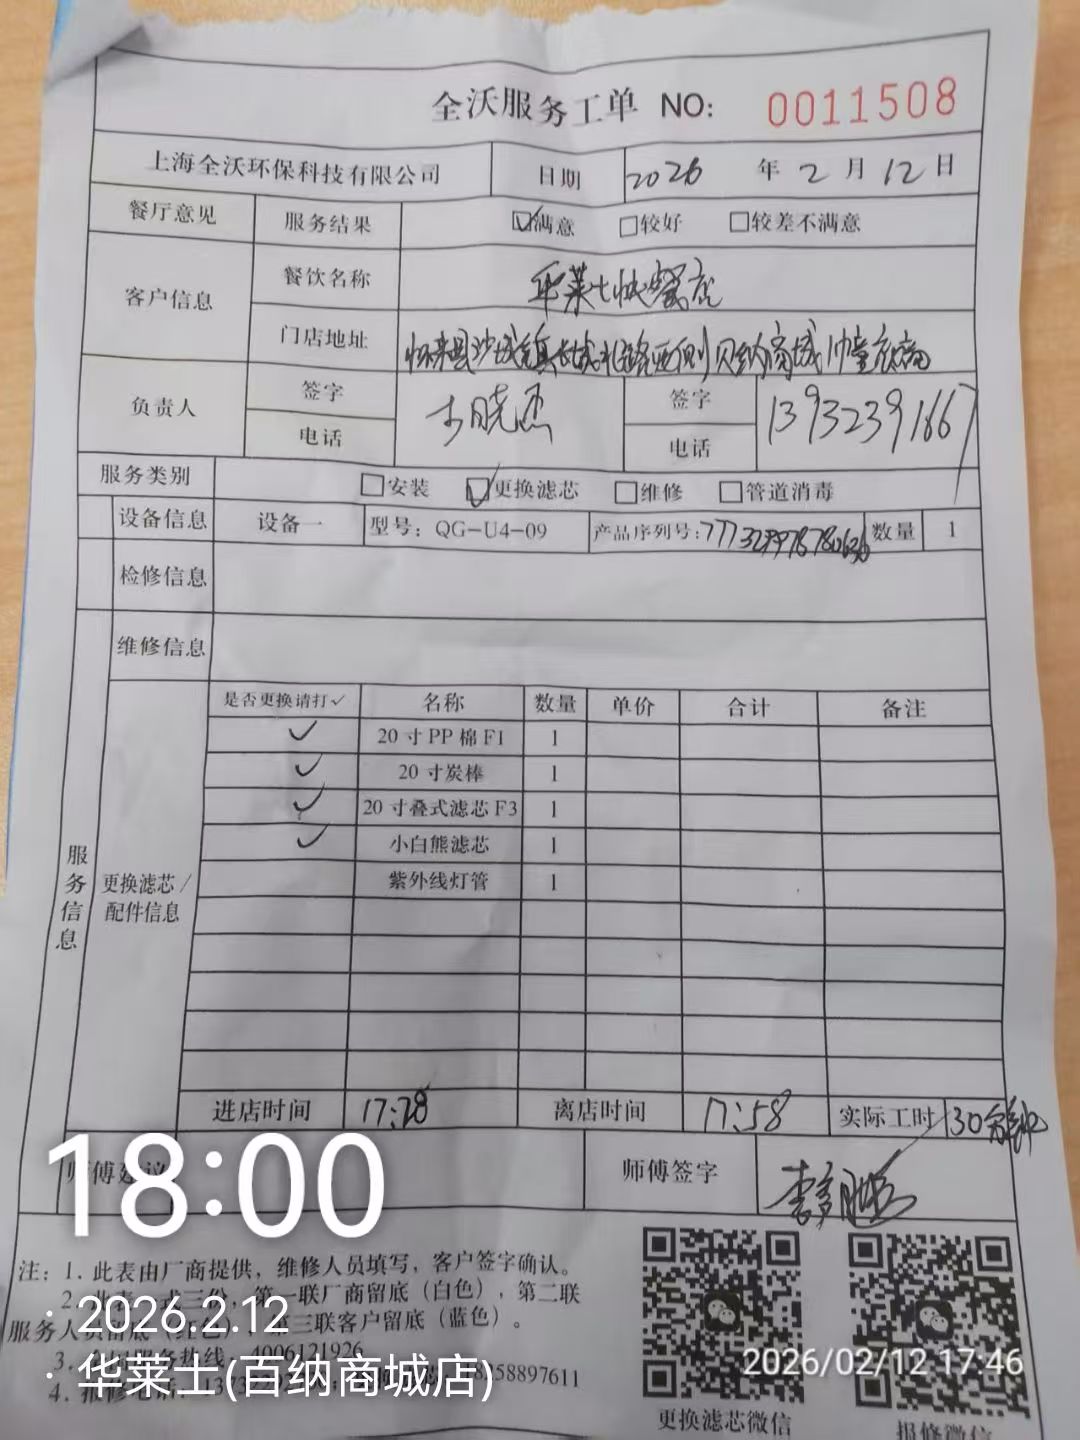 全沃服务工单 NO: 0011508
上海全沃环保科技有限公司 日期 2026 年 2 月 12 日
餐厅意见 服务结果 ☑满意 □较好 □较差不满意
客户信息 餐饮名称 华莱士快餐店
门店地址 怀来县沙城镇长城北路西侧贝纳商城
负责人 签字 签字 13932391667
电话 电话
服务类别 □安装 ☑更换滤芯 □维修 □管道消毒
设备信息 设备一 型号: QG-U4-09 产品序列号: 数量 1
检修信息
维修信息
服务信息
更换滤芯/
配件信息
是否更换请打✓ 名称 数量 单价 合计 备注
✓ 20寸PP棉F1 1
✓ 20寸炭棒 1
✓ 20寸叠式滤芯F3 1
✓ 小白熊滤芯 1
紫外线灯管 1
进店时间 17:28 离店时间 17:58 实际工时 30分钟
师傅建议 师傅签字
18:00
注: 1. 此表由厂商提供, 维修人员填写, 客户签字确认。
2. 此表一式三份, 第一联厂商留底 (白色), 第二联
服务人员留底 (红色), 第三联客户留底 (蓝色)。
3. 服务热线: 4006121926
4. 报修电话: 18258897611
· 2026.2.12
· 华莱士(百纳商城店)
2026/02/12 17:46
更换滤芯微信
报修微信